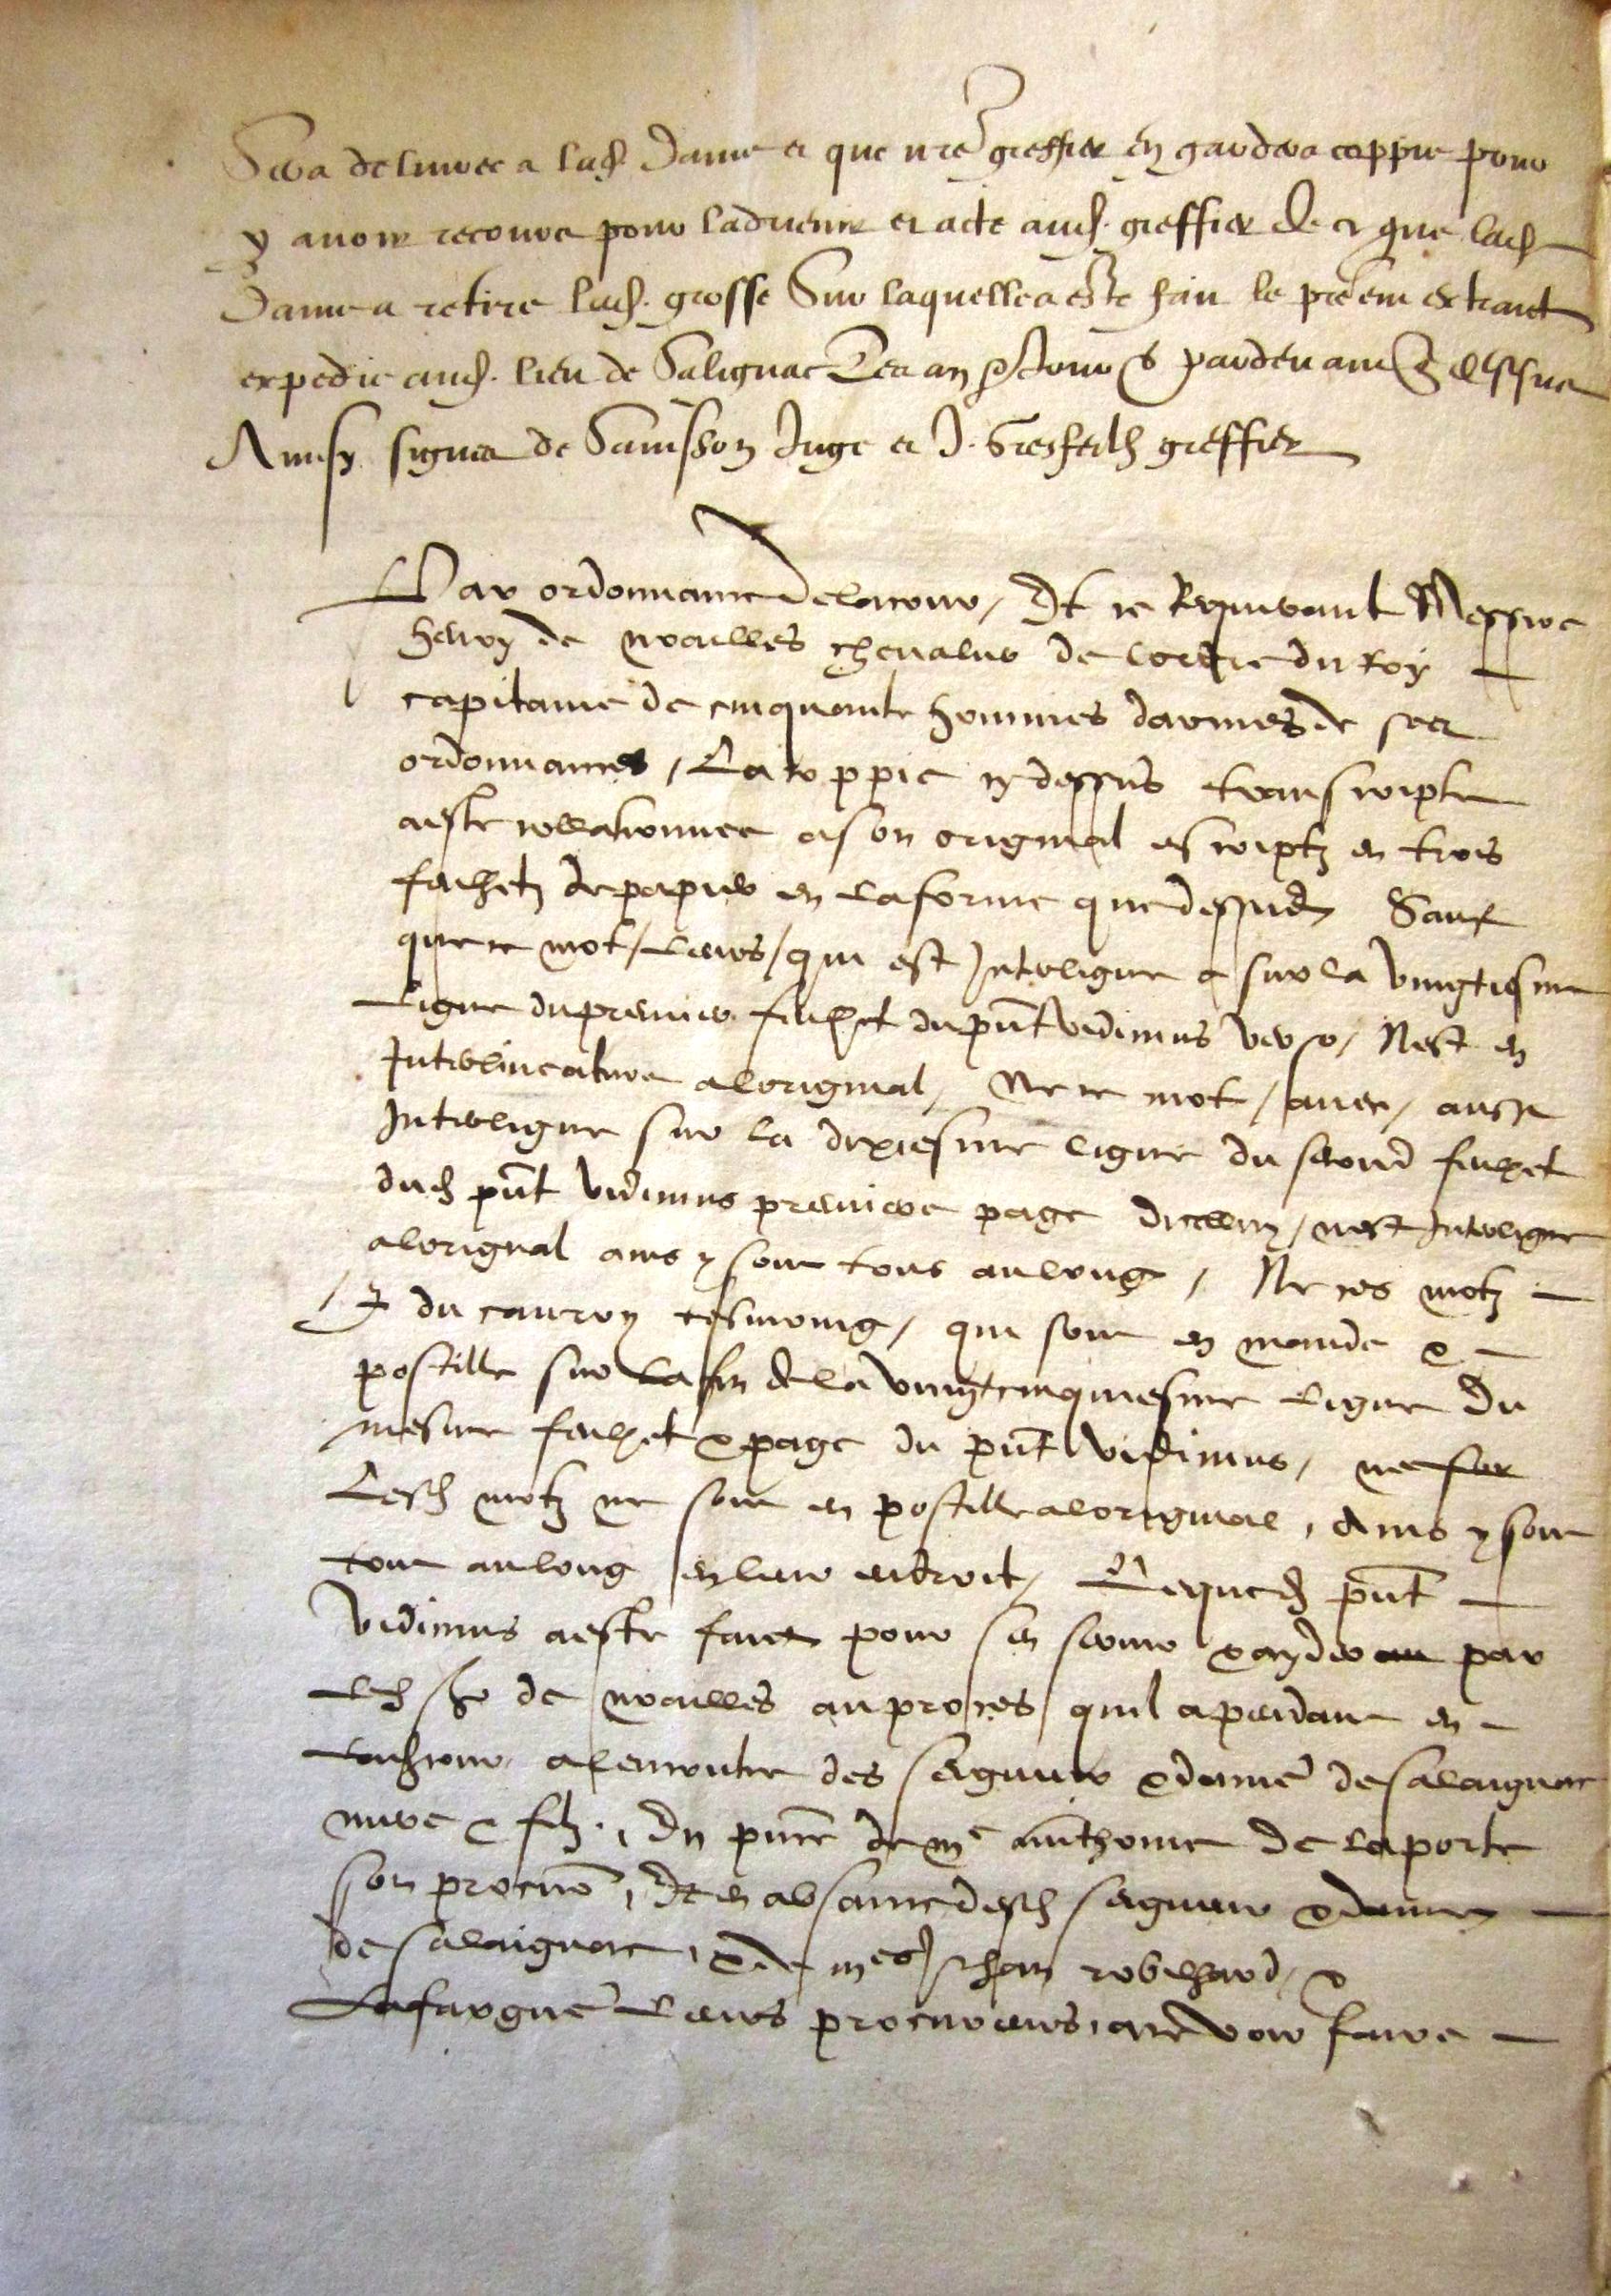 Sera delivree a lad. Dame et que nre greffier en gardera coppie pour
y avoir recours pour ladvenir et acte aud. greffier de ce que lad.
Dame a retire lad. grosse Sur laquelle a este faict le present extraict
expedie aud. lieu de Salignac Les an et jour pardevant dessus
Ainsy signes de Samsson Juge et J. greffier
Par ordonnance de la cour / Et ce Requerant Messire
henry de noailles chevalier de lordre du Roy
capitaine de cinquante hommes darmes de ses
ordonnances / La coppie cy dessus transcripte
a este collationnee a son original escriptz en trois
feulhetz de papier en la forme que dessus Sauf
que ce mot / leurs / qui est Interligne sur la vingtiesme
Ligne du premier feulhet du pnt vidimus verso / Nest en
Interlineature a loriginal / Ne ce mot / avec / aussi
Interligne sur la dixiesme ligne du second feulhet
dud pnt vidimus premiere page dicelluy / nest Interligne
a lorignal ains y sont tous au long / Ne ces motz
/ J du cauroy tesmoing / qui sont en marge &
postille sur la fin de la vingt cinquiesme Ligne Du
mesme feulhet & page du pnt vidimus /
Lesd motz ne sont en postille a loriginal / Ains y sont
tout au long en leur endroit / Lequed pnt
vidimus a este faict pour sen servir & ayder par
led sr de noailles au proces quil a pendant en
lad cour a lencontre des seigneur & dame de salaignac
mere & filz. / En pnce de me anthoine de laporte
son procur / Et en absance desd seigneur & dame
de salaignac / & de mes Jehan robelhard / &
Lafargue leurs procureurs